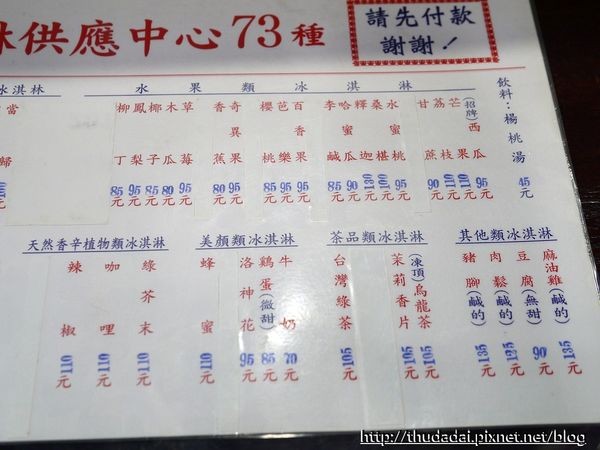 林供應中心73種
請先付款
謝謝！
冰淇林
水果類冰淇淋
飲料：楊桃湯 45元
(招牌)西瓜 95元
芒果 110元
荔枝 110元
甘蔗 90元
水蜜桃 95元
桑椹 元
釋迦 元
哈蜜瓜 90元
李鹹 85元
百香果 95元
芭樂 95元
櫻桃 85元
奇異果 95元
香蕉 80元
草莓 95元
木瓜 80元
椰子 85元
鳳梨 95元
柳丁 85元
當歸
其他類冰淇淋
麻油雞(鹹的) 135元
豆腐(無甜) 90元
肉鬆(鹹的) 125元
豬腳(鹹的) 135元
茶品類冰淇淋
(凍頂)烏龍茶 105元
茉莉香片 105元
台灣綠茶 105元
美顏類冰淇淋
牛奶 70元
雞蛋(微甜) 85元
洛神花 95元
蜂蜜 110元
天然香辛植物類冰淇淋
綠芥末 110元
咖哩 110元
辣椒 110元
http://thudadai.pixnet.net/blog